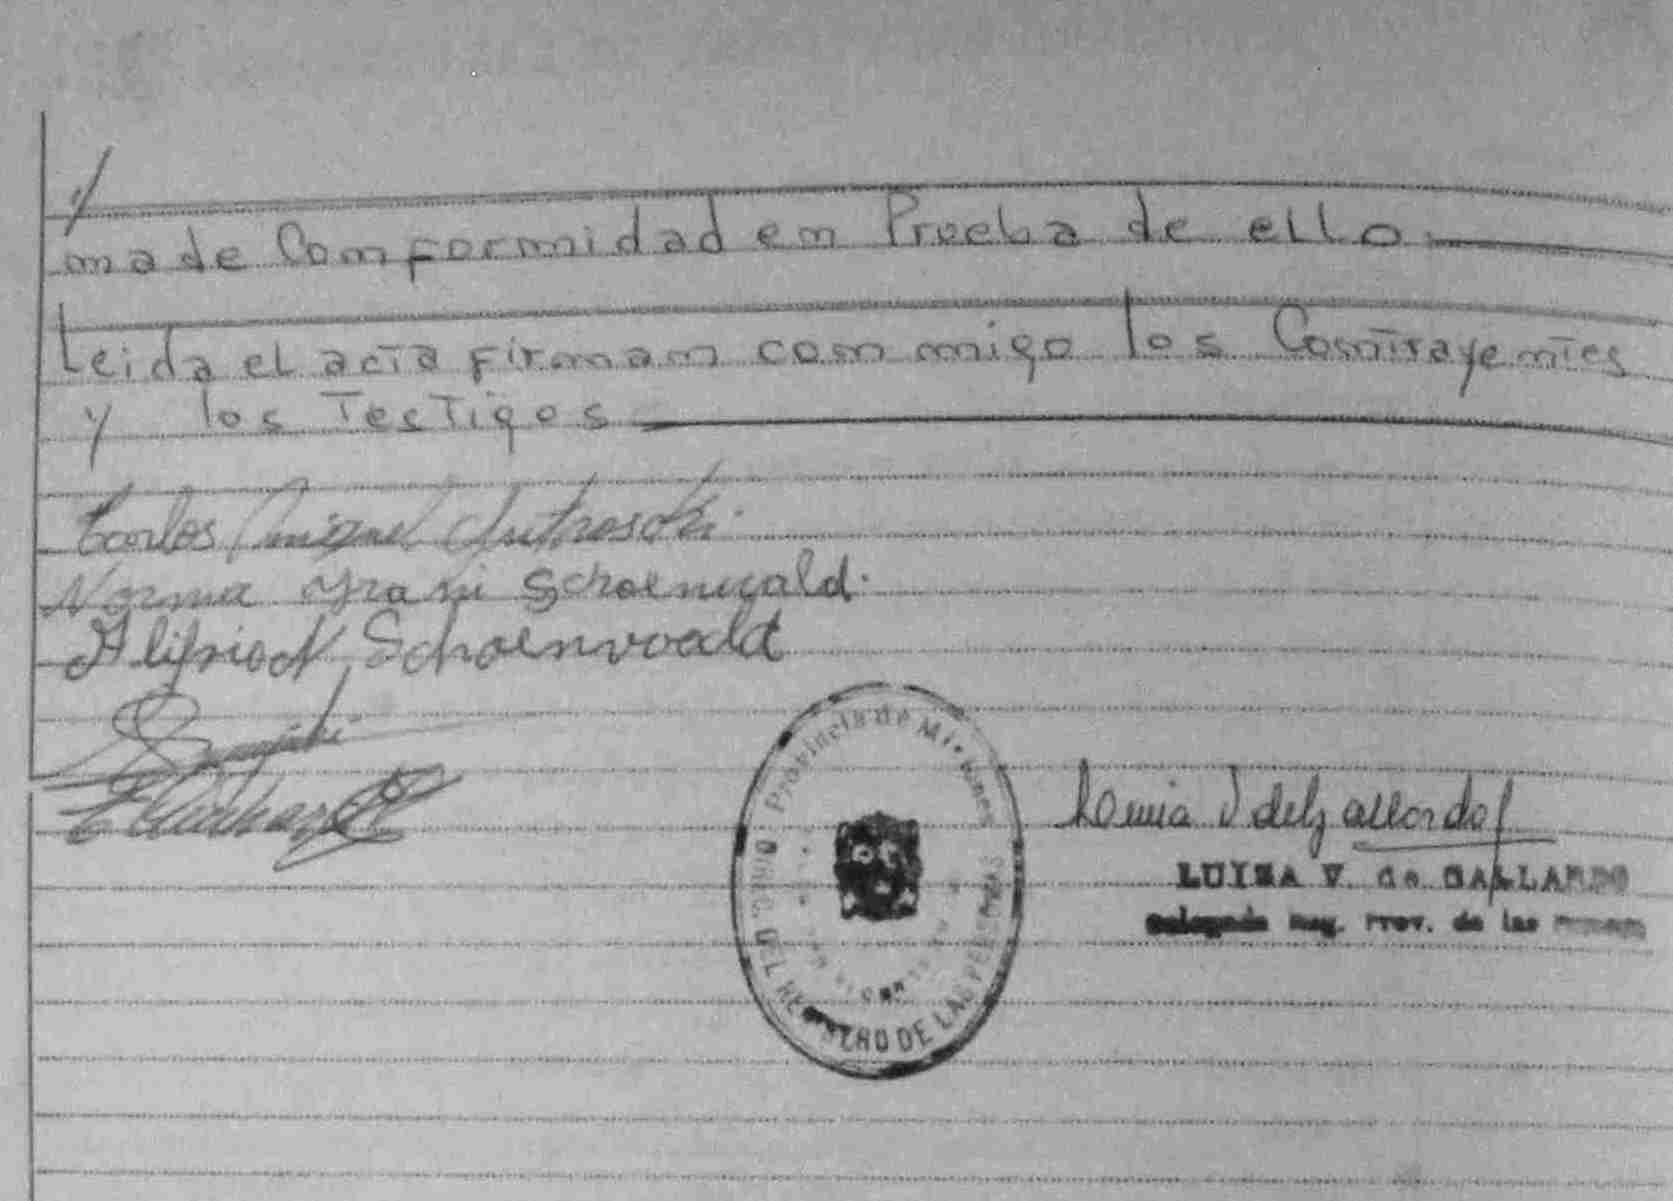 y
ma de Conformidad en Prueba de ello
Leida el acta firman con migo los Contrayentes
y los Testigos
Carlos Miguel
Norma Irani Schoenwald.
Schoenwald
Provincia de Misiones
DIREC. DEL REGISTRO DE LAS PERSONAS
LUISA V. de GALLARDO
Delegada Reg. Prov. de las Personas